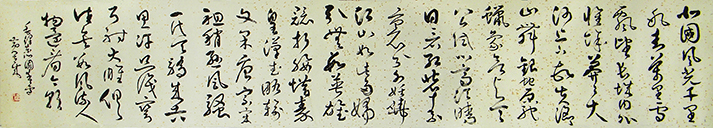 北國風光千里
冰封萬里雪
飄望長城內外
惟餘莽莽大
河上下頓失滔
滔山舞銀蛇原馳
蠟象欲與天
公試比高須晴
日看紅裝素
裹分外妖嬈
江山如此多嬌
引無數英雄
競折腰惜秦
皇漢武略輸
文采唐宗宋
祖稍遜風騷
一代天驕成吉
思汗只識彎
弓射大雕俱
往矣數風流人
物還看今朝